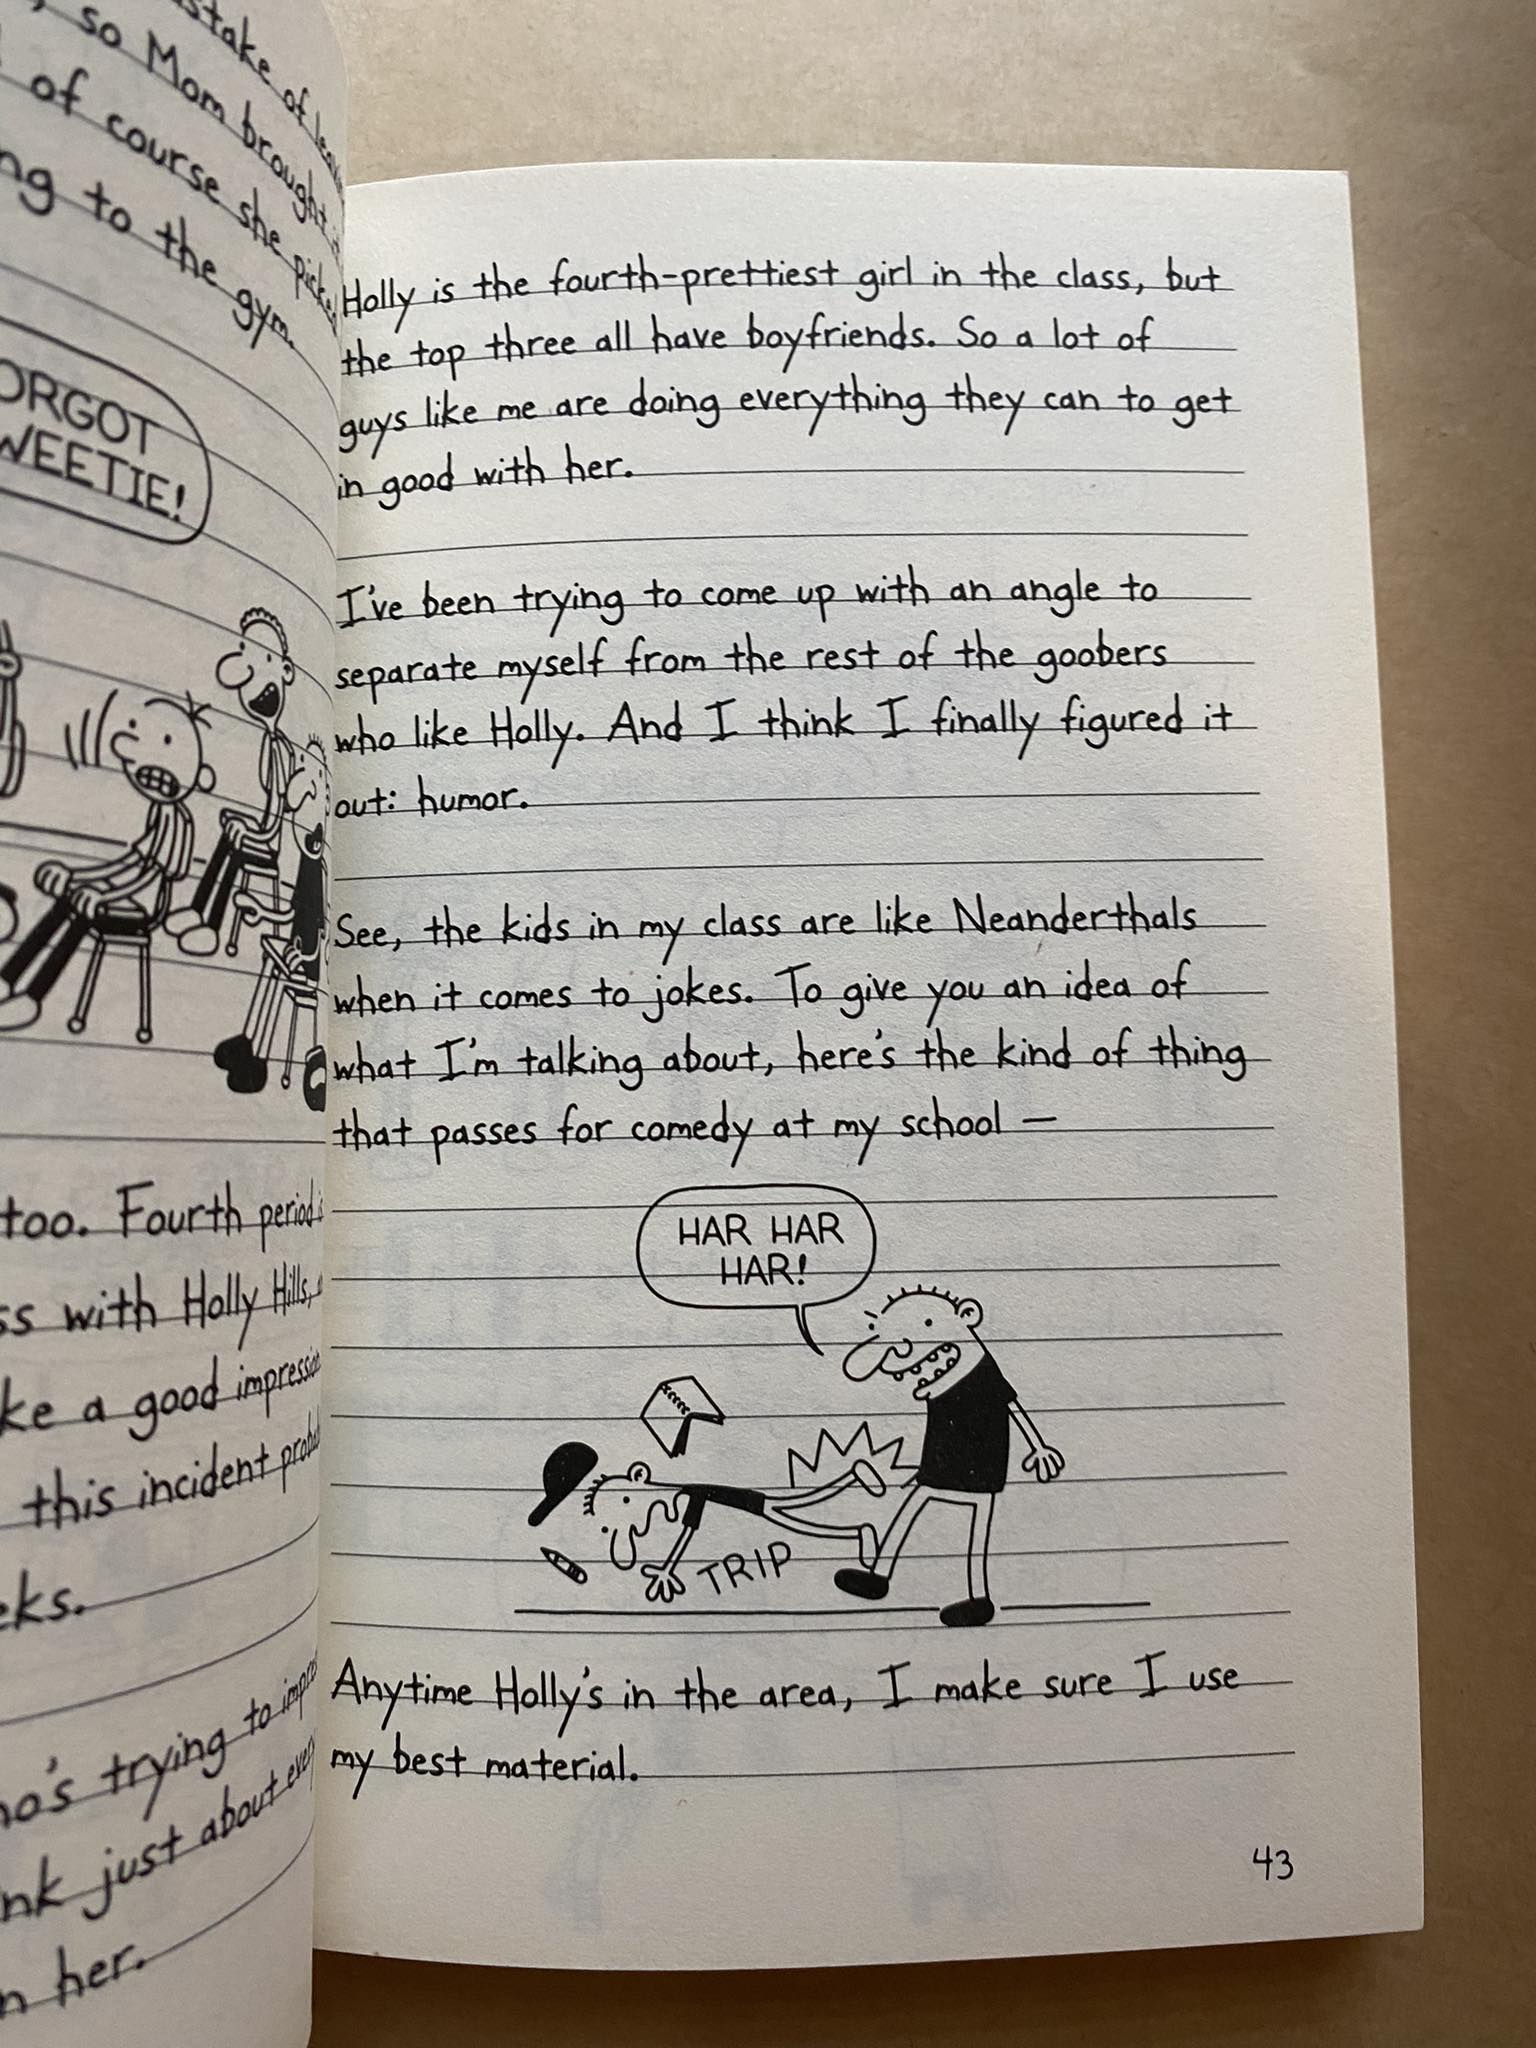 stake of
so Mom brought
of course she picked
ng to the gym.
ORGOT
WEETIE!
too. Fourth period
ss with Holly Hills,
ke a good impression
this incident
eks.
o's trying to
nk just about
n her.
Holly is the fourth-prettiest girl in the class, but
the top three all have boyfriends. So a lot of
guys like me are doing everything they can to get
in good with her.
I've been trying to come up with an angle to
separate myself from the rest of the goobers
who like Holly. And I think I finally figured it
out: humor.
See, the kids in my class are like Neanderthals
when it comes to jokes. To give you an idea of
what I'm talking about, here's the kind of thing
that passes for comedy at my school —
HAR HAR
HAR!
TRIP
Anytime Holly's in the area, I make sure I use
my best material.
43